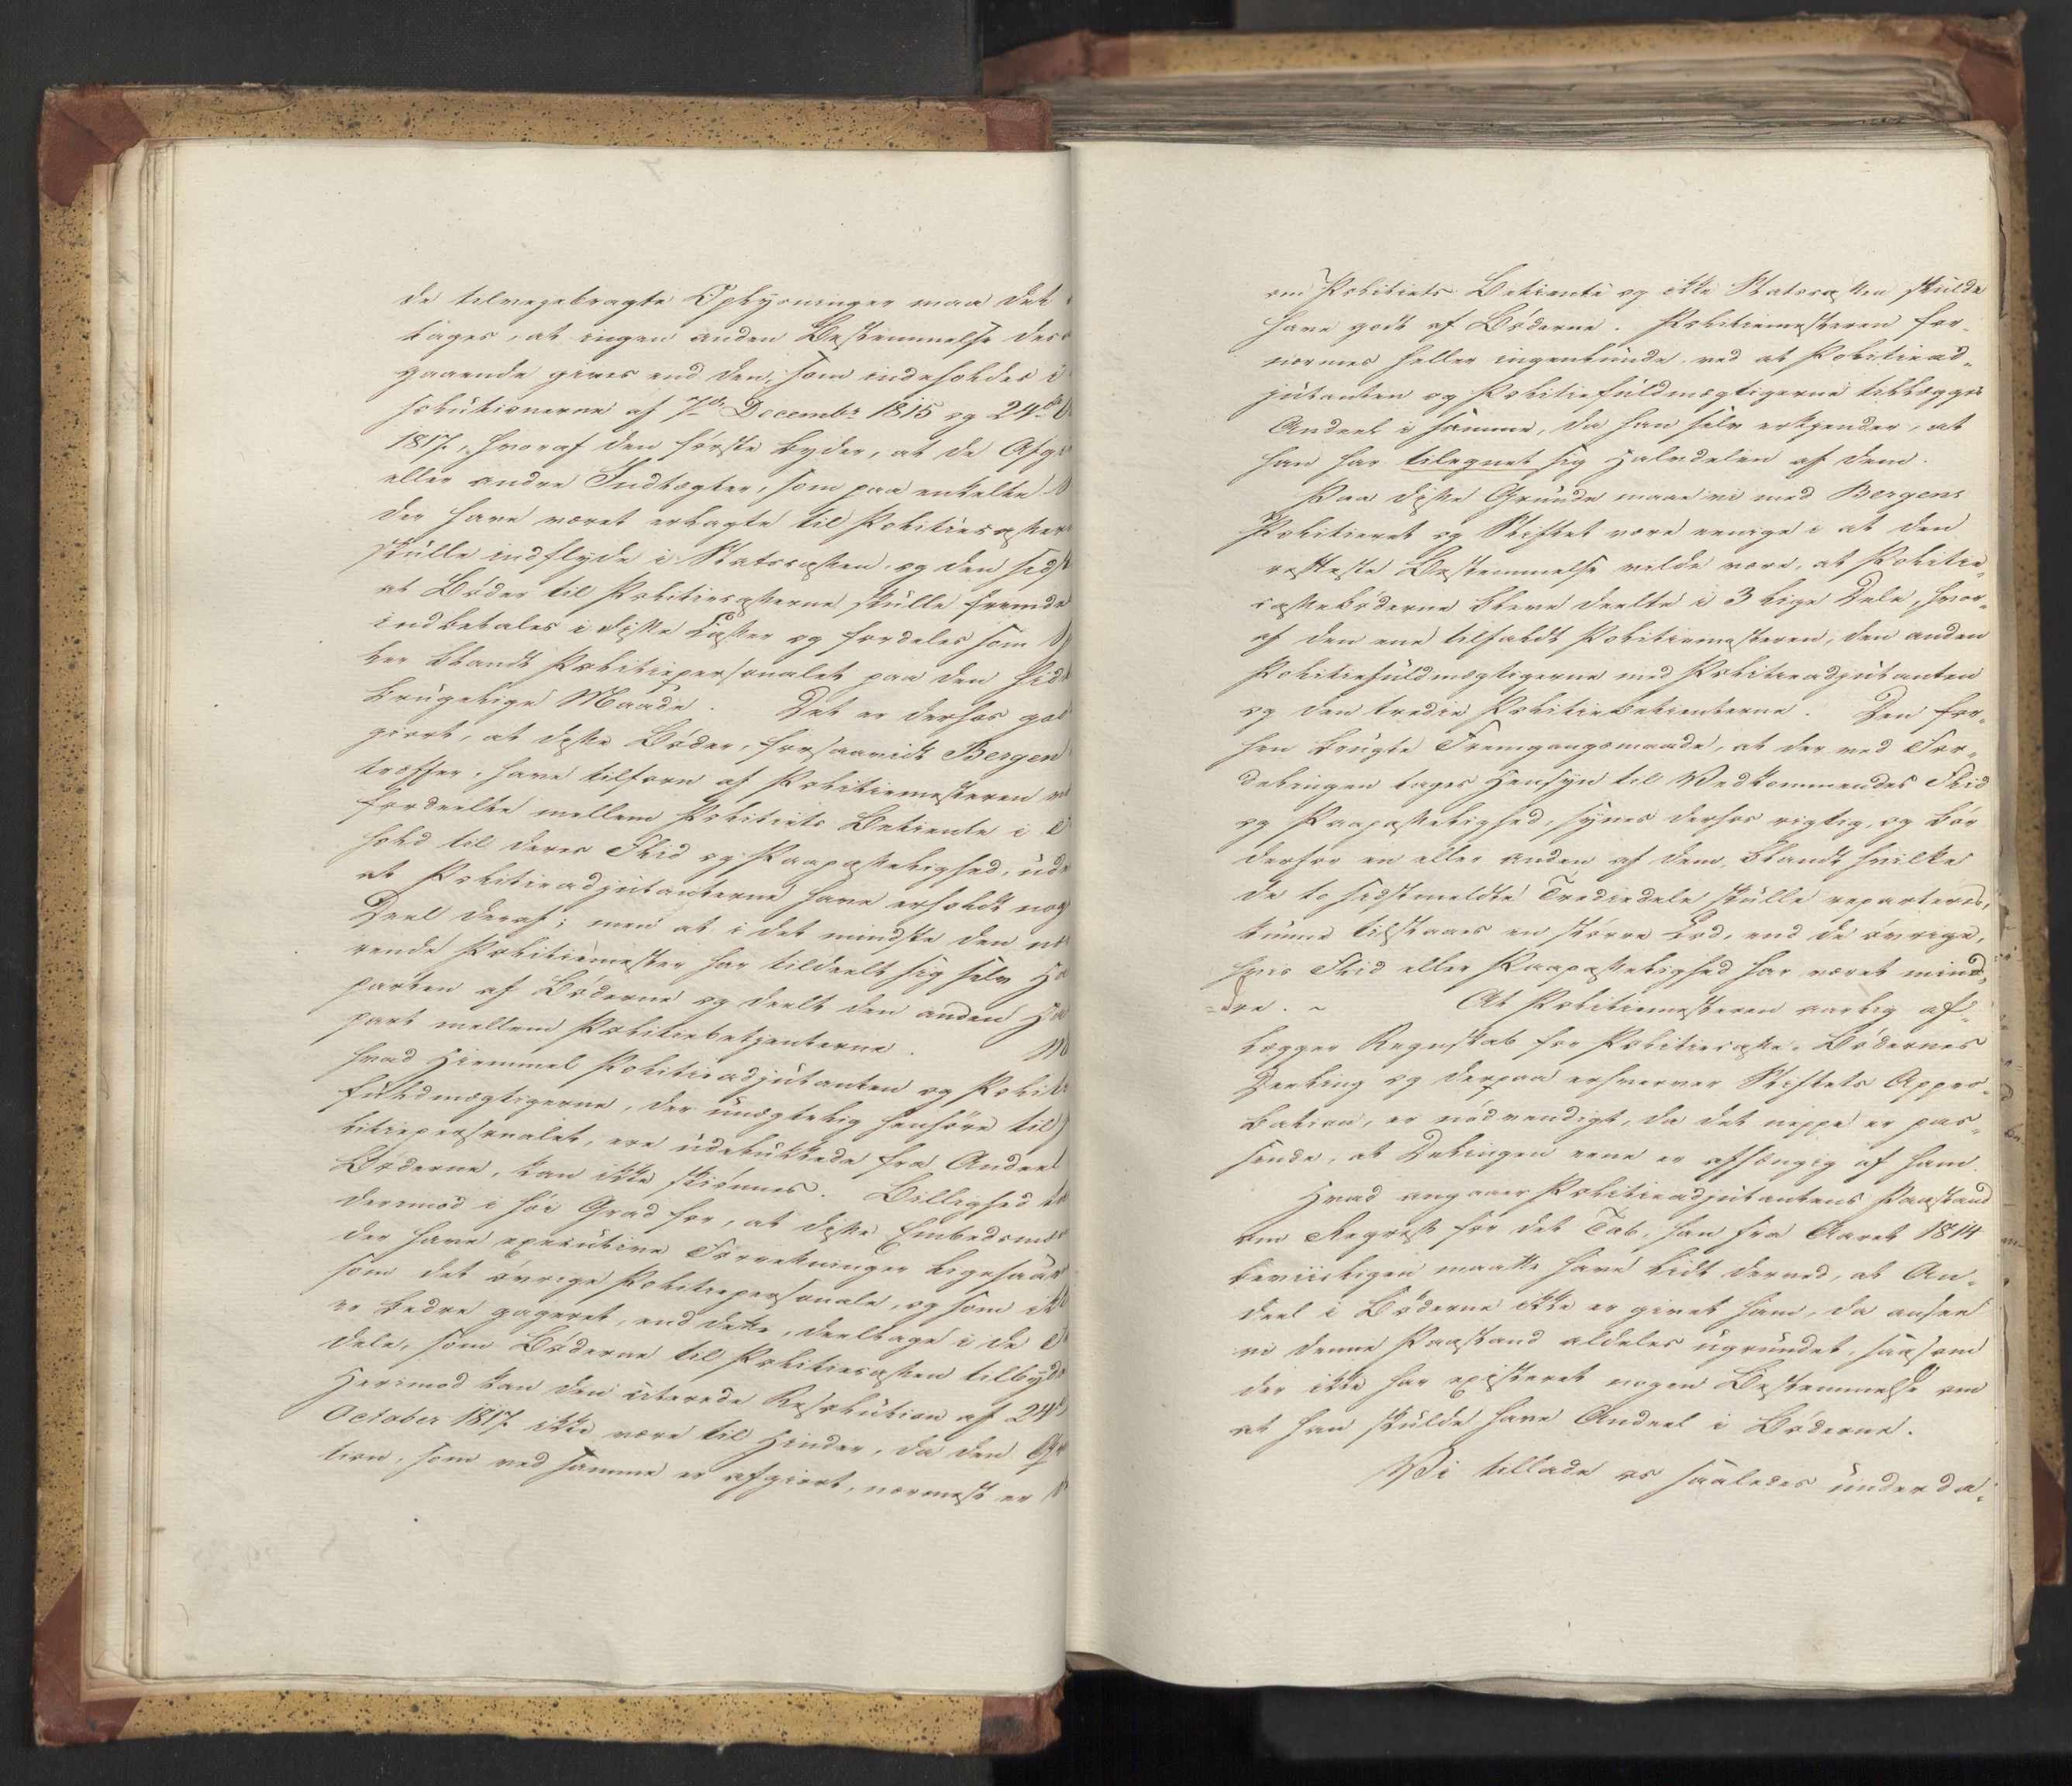 de tilvejebragte Oplysninger maa det
tages, at ingen anden Bestemmelse des
gaaende gives end den, som indeholdes i
solutionerne af 7de Decembr 1815 og 24de
1817, hvoraf den første lyder, at de Afgi
eller andre Indtægter, som paa enkelte
der have været erlagte til Politiecasser
skulle indflyde i Statscassen, og den sidst
at Bøder til Politiecasserne skulle fremde
indbetales i disse Casser og fordeles som
ker blandt Politiepersonalet paa den hid
brugelige Maade. Det er derhos god
giort, at disse Bøder, forsaavidt Bergen
træffer, have tilforn af Politiemesteren
fordeelte mellem Politiets Betiente i
hold til deres Flid og Paapasselighed, ude
at Politieadjutanterne have erholdt nog
Deel deraf; men at i det mindste den nu
rende Politiemester har tildeelt sig selv Ha
parten af Bøderne og deelt den anden Ha
part mellem Politiebetjenterne.
hvad Hiemmel Politieadjutanten og Politi
fuldmægtigerne, der unægtelig henhøre til
litiepersonalet, ere udelukkede fra Andeel
Bøderne, kan ikke skiønnes. Billighed ta
derimod i høi Grad for, at disse Embedsmæ
der have executive Forretninger ligesaav
som det øvrige Politiepersonale, og som ik
er bedre gageret, end dette, deeltage i de
dele, som Bøderne til Politiecassen tilbyde
Herimod kan den citerede Resolution af 24de
October 1817 ikke være til Hinder, da den
tion, som ved samme er afgiort, nærmest er
om Politiets Betiente og ikke Statscassen skulde
have godt af Bøderne. Politiemesteren for-
nærmes heller ingenlunde ved at Politiead-
jutanten og Politiefuldmægtigerne tillægges
Andeel i samme, da han selv erkjender, at
han har tilegnet sig Halvdelen af dem.
Paa disse Grunde maae vi med Bergens
Politieret og Stiftet være enige i at den
retteste Bestemmelse vilde være, at Politie-
cassebøderne bleve deelte i 3 lige Dele, hvor-
af den ene tilfaldt Politiemesteren, den anden
Politiefuldmægtigerne med Politieadjutanten
og den tredie Politiebetienterne. Den for-
hen brugte Fremgangsmaade, at der ved For-
delingen tages Hensyn til Vedkommendes Flid
og Paapasselighed, synes derhos rigtig, og bør
derfor en eller anden af dem, blandt hvilke
de to sidstmeldte Trediedele skulle reparteres,
kunne tilstaaes en større Lod, end de øvrige,
hvis Flid eller Paapasselighed har været mind-
=dre. ~ At Politiemesteren aarlig af-
lægger Regnskab for Politiecasse-Bødernes
Deeling og derpaa erhverver Stiftets Appro-
bation, er nødvendigt, da det neppe er pas-
sende, at Delingen ene er afhængig af ham.
Hvad angaaer Politieadjutantens Paastand
om Regress for det Tab, han fra Aaret 1814
beviisligen maatte have lidt derved, at An-
deel i Bøderne ikke er givet ham, da ansee
vi denne Paastand aldeles ugrundet, saasom
der ikke har existeret nogen Bestemmelse om
at han skulde have Andeel i Bøderne.
Vi tillade os saaledes underda-